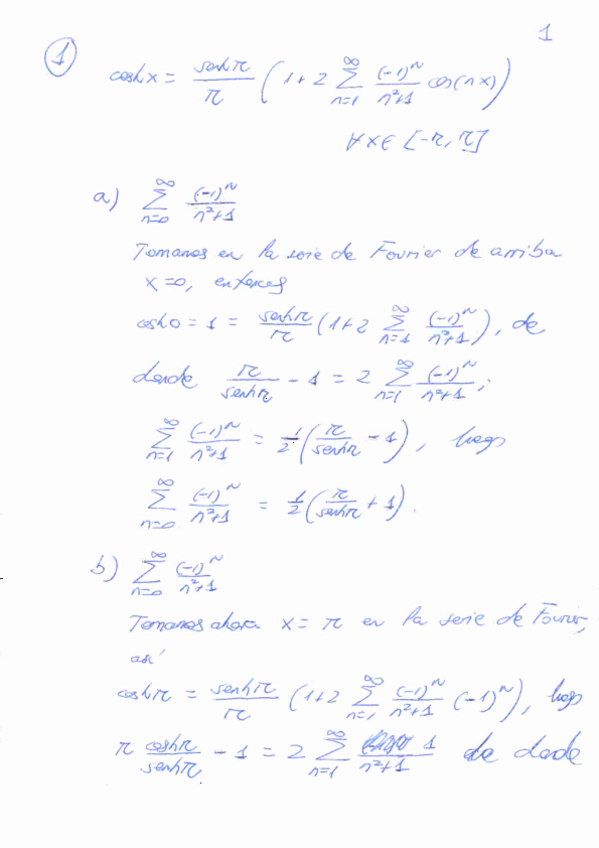 1
1
cosh x = senh π / π (1 + 2 ∑_{n=1}^{∞} (-1)^n / (n²+1) cos(nx))
∀ x ∈ [-π, π]
a) ∑_{n=0}^{∞} (-1)^n / (n²+1)
Tomamos en la serie de Fourier de arriba
x = 0, entonces
cosh 0 = 1 = senh π / π (1 + 2 ∑_{n=1}^{∞} (-1)^n / (n²+1)), de
donde π / senh π - 1 = 2 ∑_{n=1}^{∞} (-1)^n / (n²+1);
∑_{n=1}^{∞} (-1)^n / (n²+1) = 1/2 (π / senh π - 1), luego
∑_{n=0}^{∞} (-1)^n / (n²+1) = 1/2 (π / senh π + 1).
b) ∑_{n=0}^{∞} (-1)^n / (n²+1)
Tomamos ahora x = π en la serie de Fourier,
así
cosh π = senh π / π (1 + 2 ∑_{n=1}^{∞} (-1)^n / (n²+1) (-1)^n), luego
π cosh π / senh π - 1 = 2 ∑_{n=1}^{∞} 1 / (n²+1) de donde